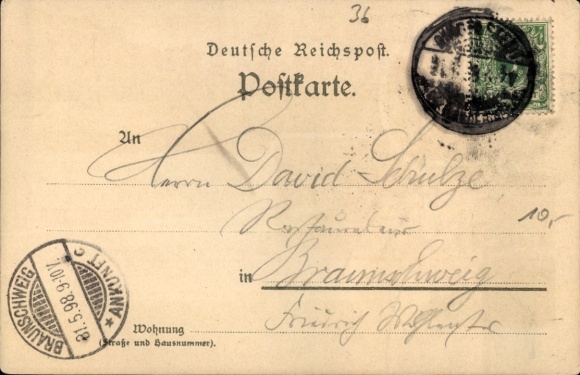 36
Deutsche Reichspost.
Postkarte.
An
Herrn David Schulze
Restaurateur
10,-
in Braunschweig
Friedrich
Wohnung
(Straße und Hausnummer).
BRAUNSCHWEIG
31.5.98.9-10V.
* ANKUNFT C